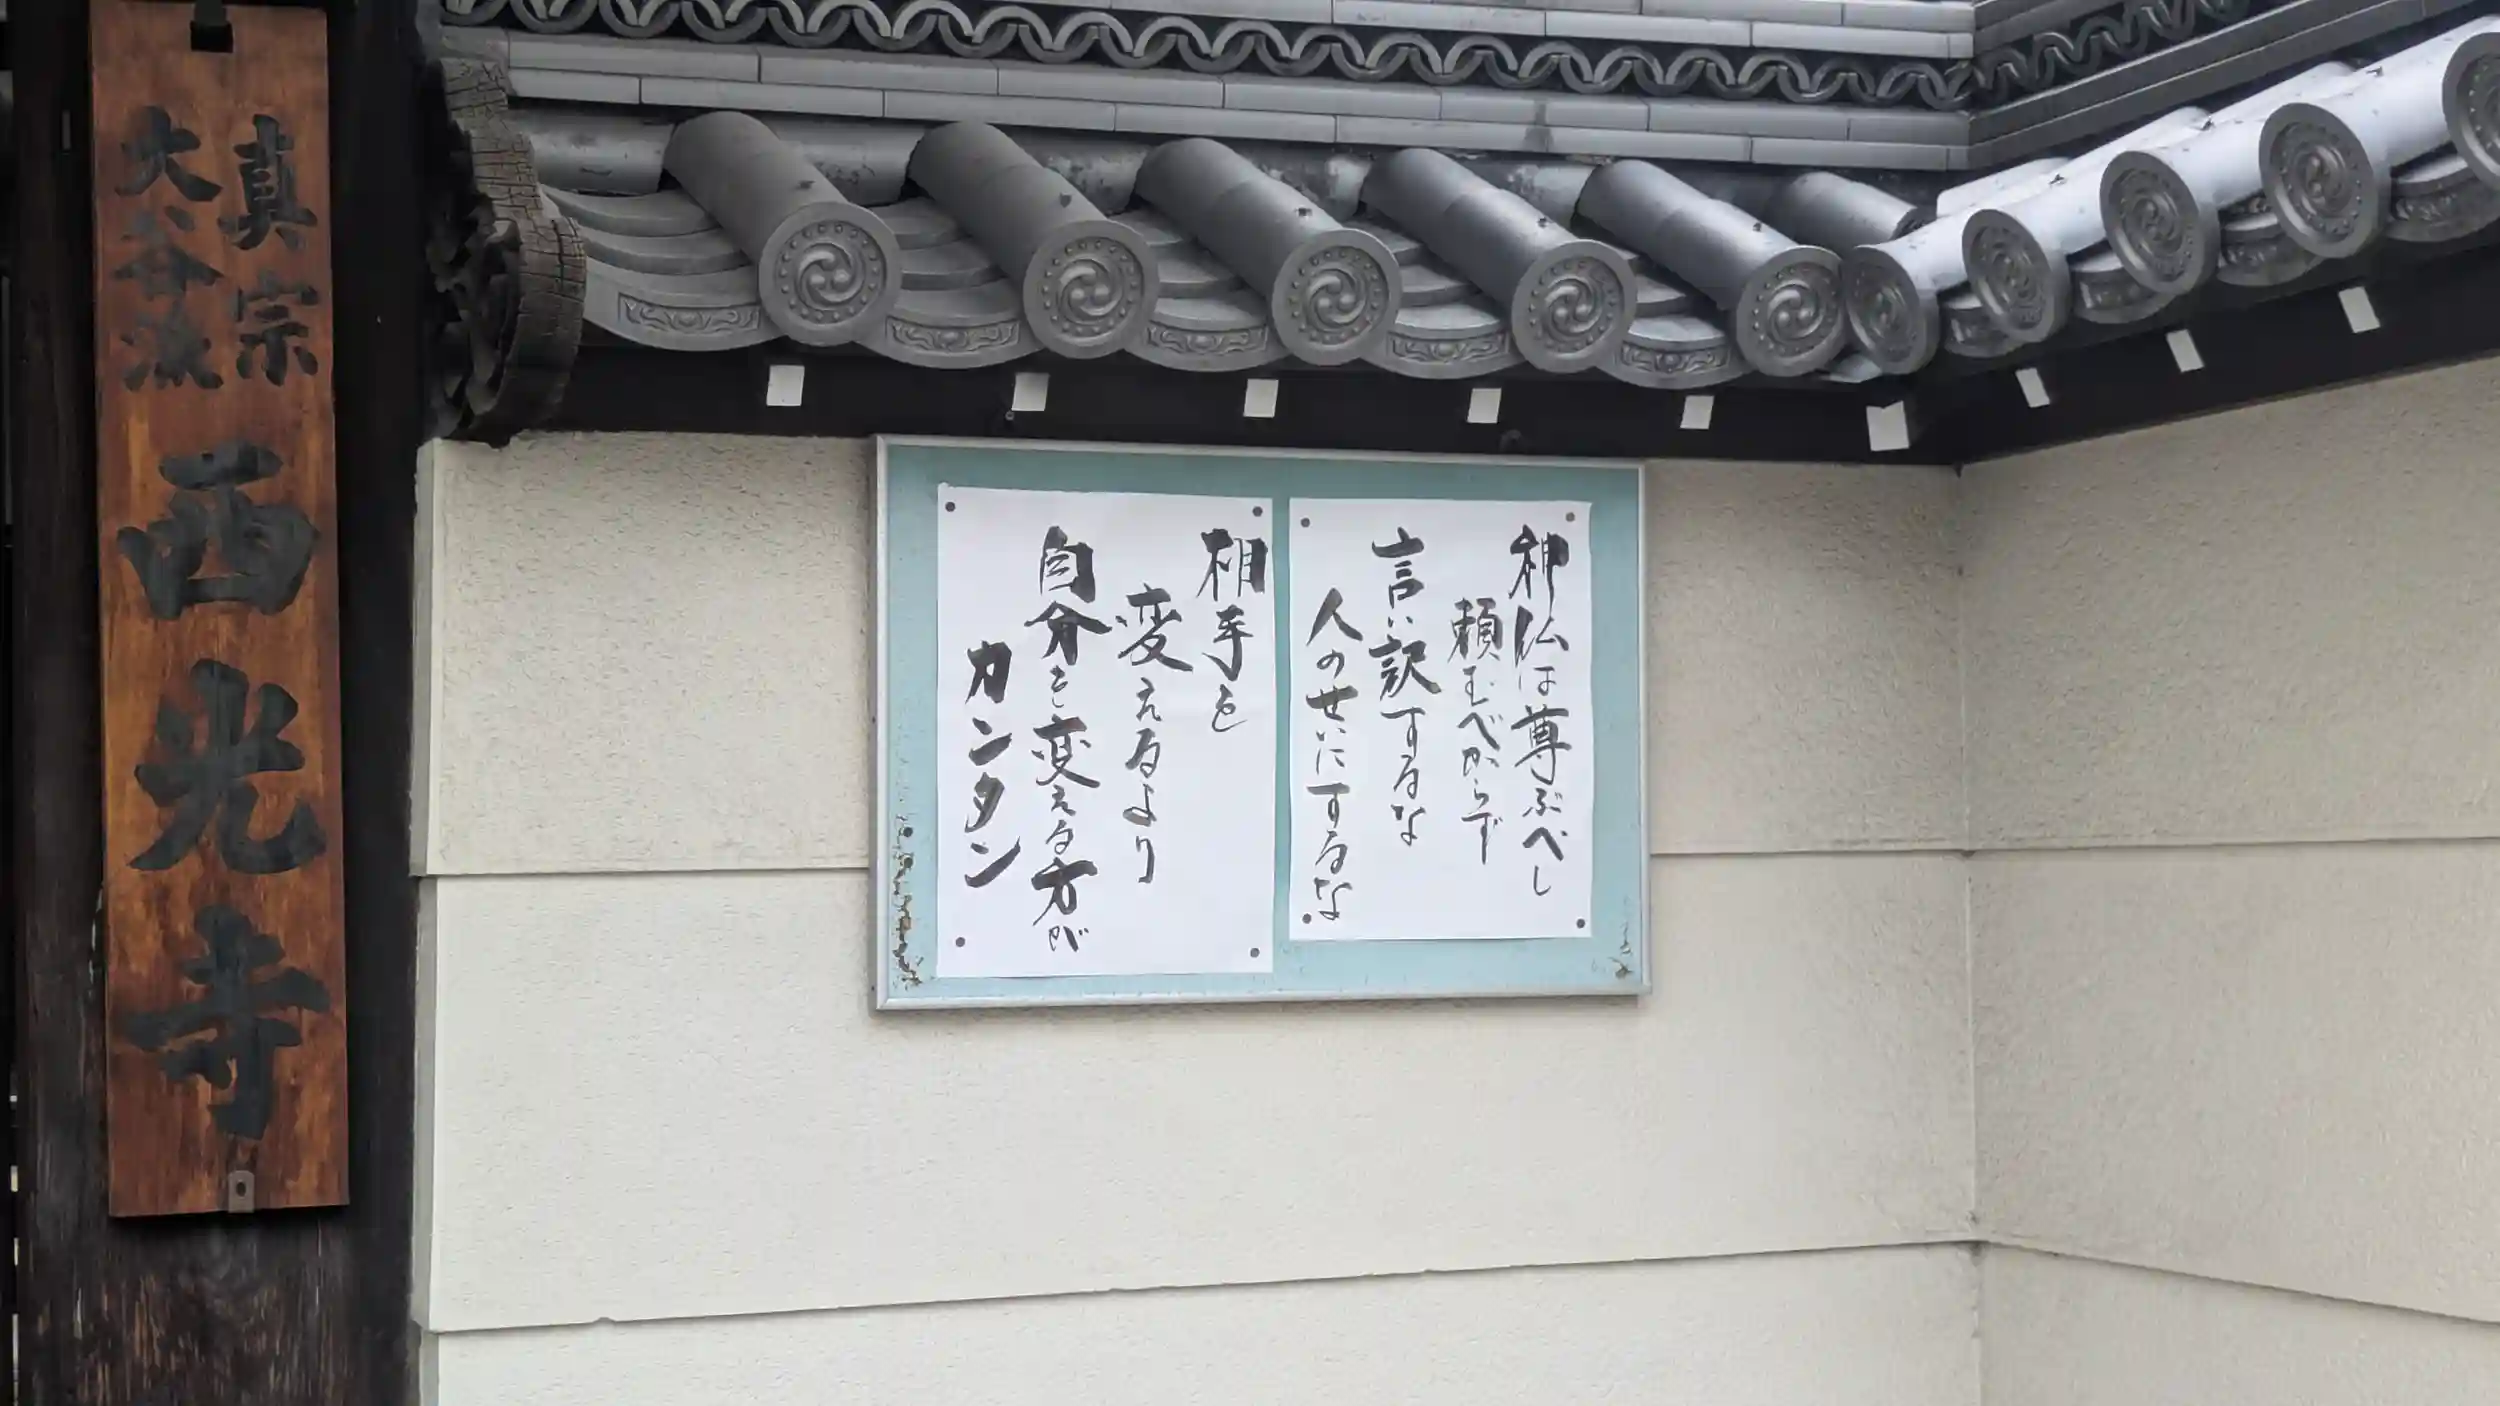 真宗
大谷派
西光寺
神仏は尊ぶべし
頼むべからず
言い訳するな
人のせいにするな
相手を
変えるより
自分を変える方が
カンタン